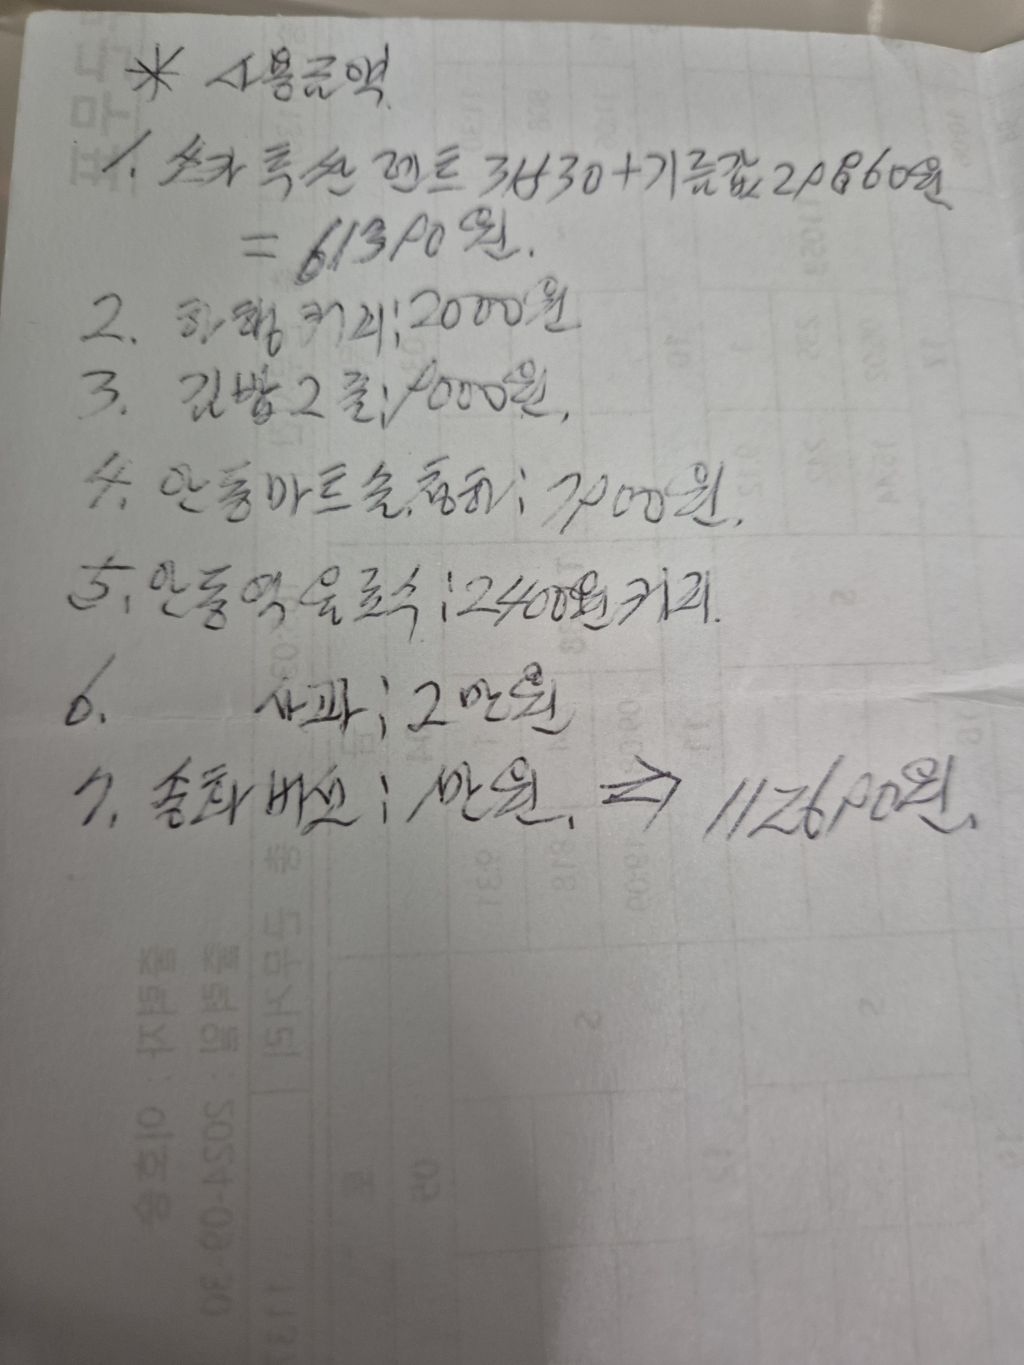 * 사용금액
1. 쏘카 렌트 31530+기름값 29860원
= 61390원.
2. 하행 커피; 2000원
3. 김밥 2줄; 9000원.
4. 안동마트 술.청하; 7900원.
5. 안동역 음료수; 2400원 커피.
6. 사과; 2만원
7. 송화버섯; 1만원. ⇒ 112690원.